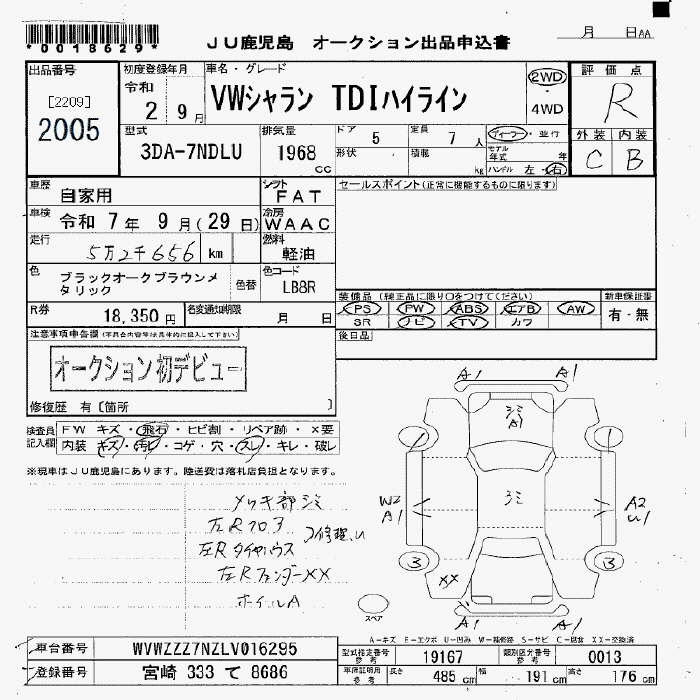 *0018629*
JU鹿児島 オークション出品申込書
月 日AA
出品番号
[2209]
2005
初度登録年月
令和
2 9月
車名・グレード
VWシャラン TDIハイライン
2WD
・
4WD
評価点
R
外装 内装
C B
型式
3DA-7NDLU
排気量
1968
cc
ドア 5
定員 7 人
形状
積載 kg
ディーラー・並行
モデル年式 年
ハンドル 左・右
車歴
自家用
シフト
FAT
セールスポイント(正常に機能するものに限ります)
車検
令和 7年 9月(29日)
冷房
WAAC
走行
5万2千656 km
燃料
軽油
色
ブラックオークブラウンメタリック
色替
色コード
LB8R
R券
18,350円
名変通知期限
月 日
装備品(純正品に限り○をつけてください)
PS PW ABS エアB AW
SR ナビ TV カワ
新車保証書
有・無
後日品
注意事項申告欄
オークション初デビュー
修復歴 有〔箇所 〕
検査員記入欄
FW キズ・飛石・ヒビ割・リペア跡・×要
内装 キズ・汚れ・コゲ・穴・スレ・キレ・破レ
※現車はJU鹿児島にあります。陸送費は落札店負担となります。
メッキ部シミ
左Rタイヤハウス
左RフェンダーXX
ホイルA
A1 A1
シミ
A1
シミ
W2
A1
A2
U1
3 3
XX
A1 A1
スペア
A-キズ E-エクボ U-凹み W-補修跡 S-サビ C-腐食 XX-交換済
車台番号 WVWZZZ7NZLV016295
登録番号 宮崎 333 て 8686
型式指定番号
参考
19167
類別区分番号
参考
0013
車検証明用
参考
長さ 485cm 幅 191cm 高さ 176cm